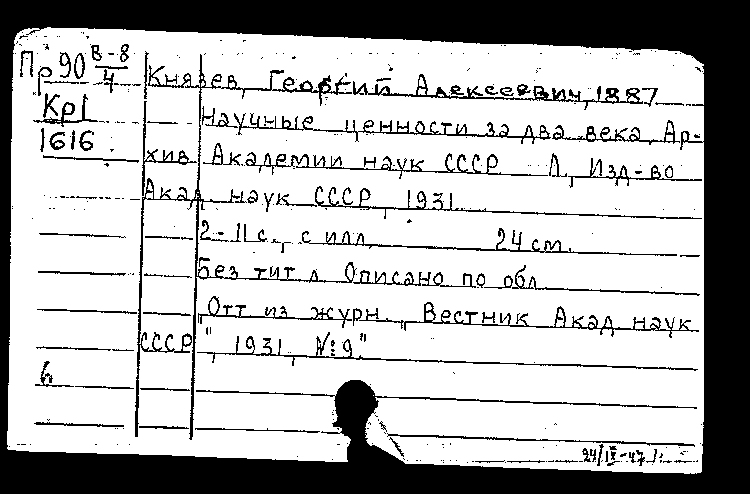 Пр 90 В-8/4
Кр1
1616
Князев, Георгий Алексеевич, 1887
Научные ценности за два века. Ар-
хив Академии наук СССР Л., Изд-во
Акад. наук СССР, 1931.
2-11 с., с илл. 24 см.
Без тит л Описано по обл.
"Отт из журн. "Вестник Акад наук
СССР", 1931, №9."
24/IX-47 г.